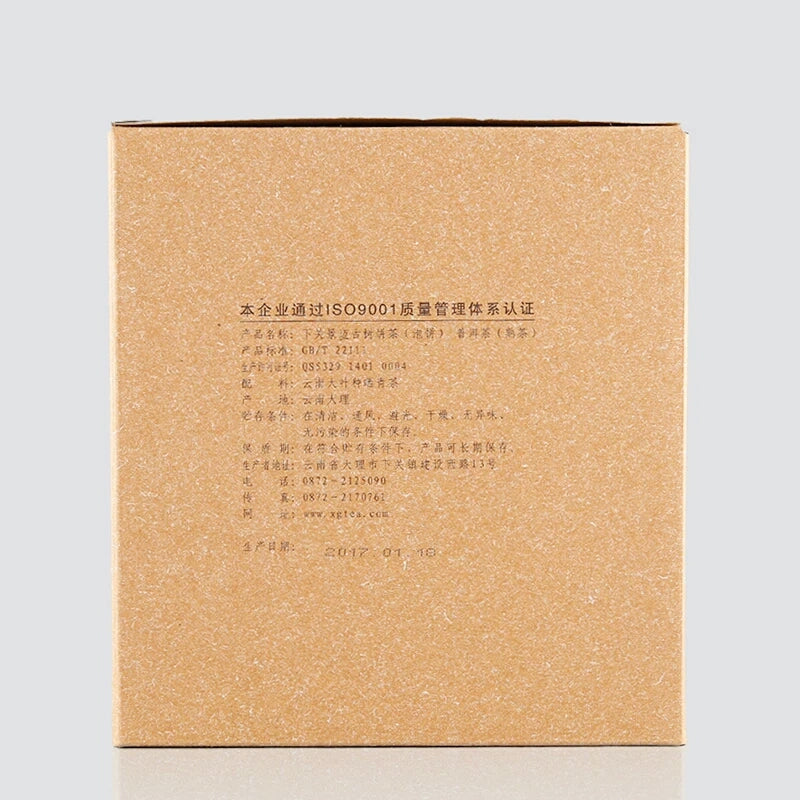 本企业通过ISO9001质量管理体系认证
产品名称：下关景迈古树饼茶（泡饼） 普洱茶（熟茶）
产品标准：GB/T 22111
生产许可证号：QS5329 1401 0084
配 料：云南大叶种晒青茶
产 地：云南大理
贮存条件：在清洁、通风、避光、干燥、无异味、
无污染的条件下保存。
保 质 期：在符合贮存条件下，产品可长期保存。
生产者地址：云南省大理市下关镇建设西路13号
电 话：0872-2125090
传 真：0872-2170761
网 址：www.xgtea.com
生产日期：2017.01.18